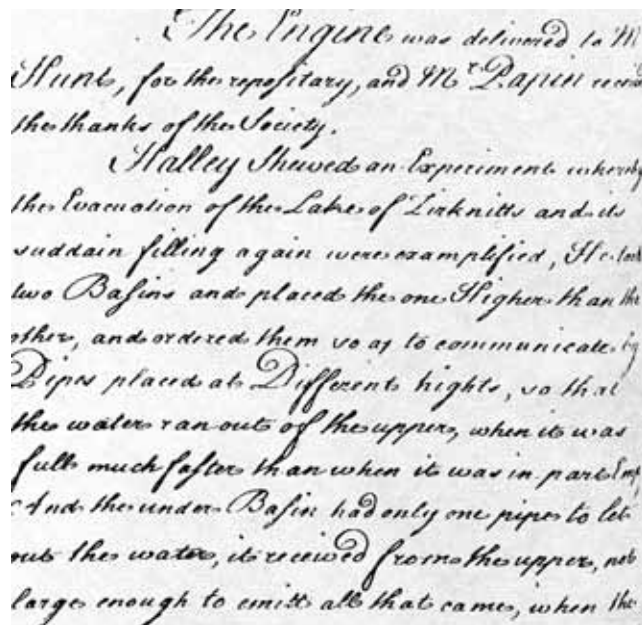 The Engine was delivered to Mr
Hunt, for the repositary, and Mr. Papin
the thanks of the Society.
Halley Shewed an Experiment whereby
the Evacuation of the Lake of Zirknitts and its
suddain filling again were examplified, He took
two Basins and placed the one Higher than the
other, and ordered them so as to communicate by
Pipes placed at Different hights, so that
the water ran out of the upper, when it was
full much faster than when it was in part Emp
And the under Basin had only one pipe to let
out the water, it received from the upper, not
large enough to emitt all that came, when the